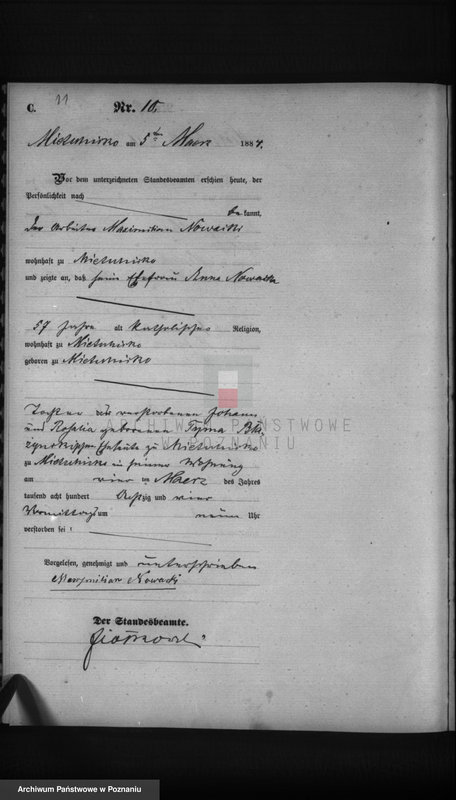 C. 11 Nr. 10.
Mietschisko am 5ten Maerz 1884.
Vor dem unterzeichneten Standesbeamten erschien heute, der
Persönlichkeit nach
bekannt,
Der Arbeiter Maximilian Nowacki
wohnhaft zu Mietschisko
und zeigte an, daß seine Ehefrau Anna Nowacka
57 Jahre alt katholischer Religion,
wohnhaft zu Mietschisko
geboren zu Mietschisko
ARCHIWUM PAŃSTWOWE
W POZNANIU
Tochter der verstorbenen Johann
und Rosalia geborenen
Eheleute zu Mietschisko
zu Mietschisko in seiner Wohnung
am vier ten Maerz des Jahres
tausend acht hundert Achtzig und vier
Vormittags um neun Uhr
verstorben sei
Vorgelesen, genehmigt und unterschrieben
Maximilian Nowacki
Der Standesbeamte.
Archiwum Państwowe w Poznaniu